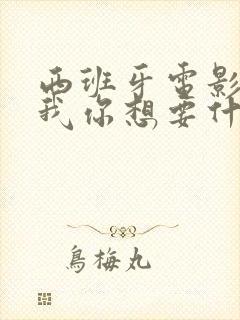 西班牙电影
我你想要什
鸟梅丸